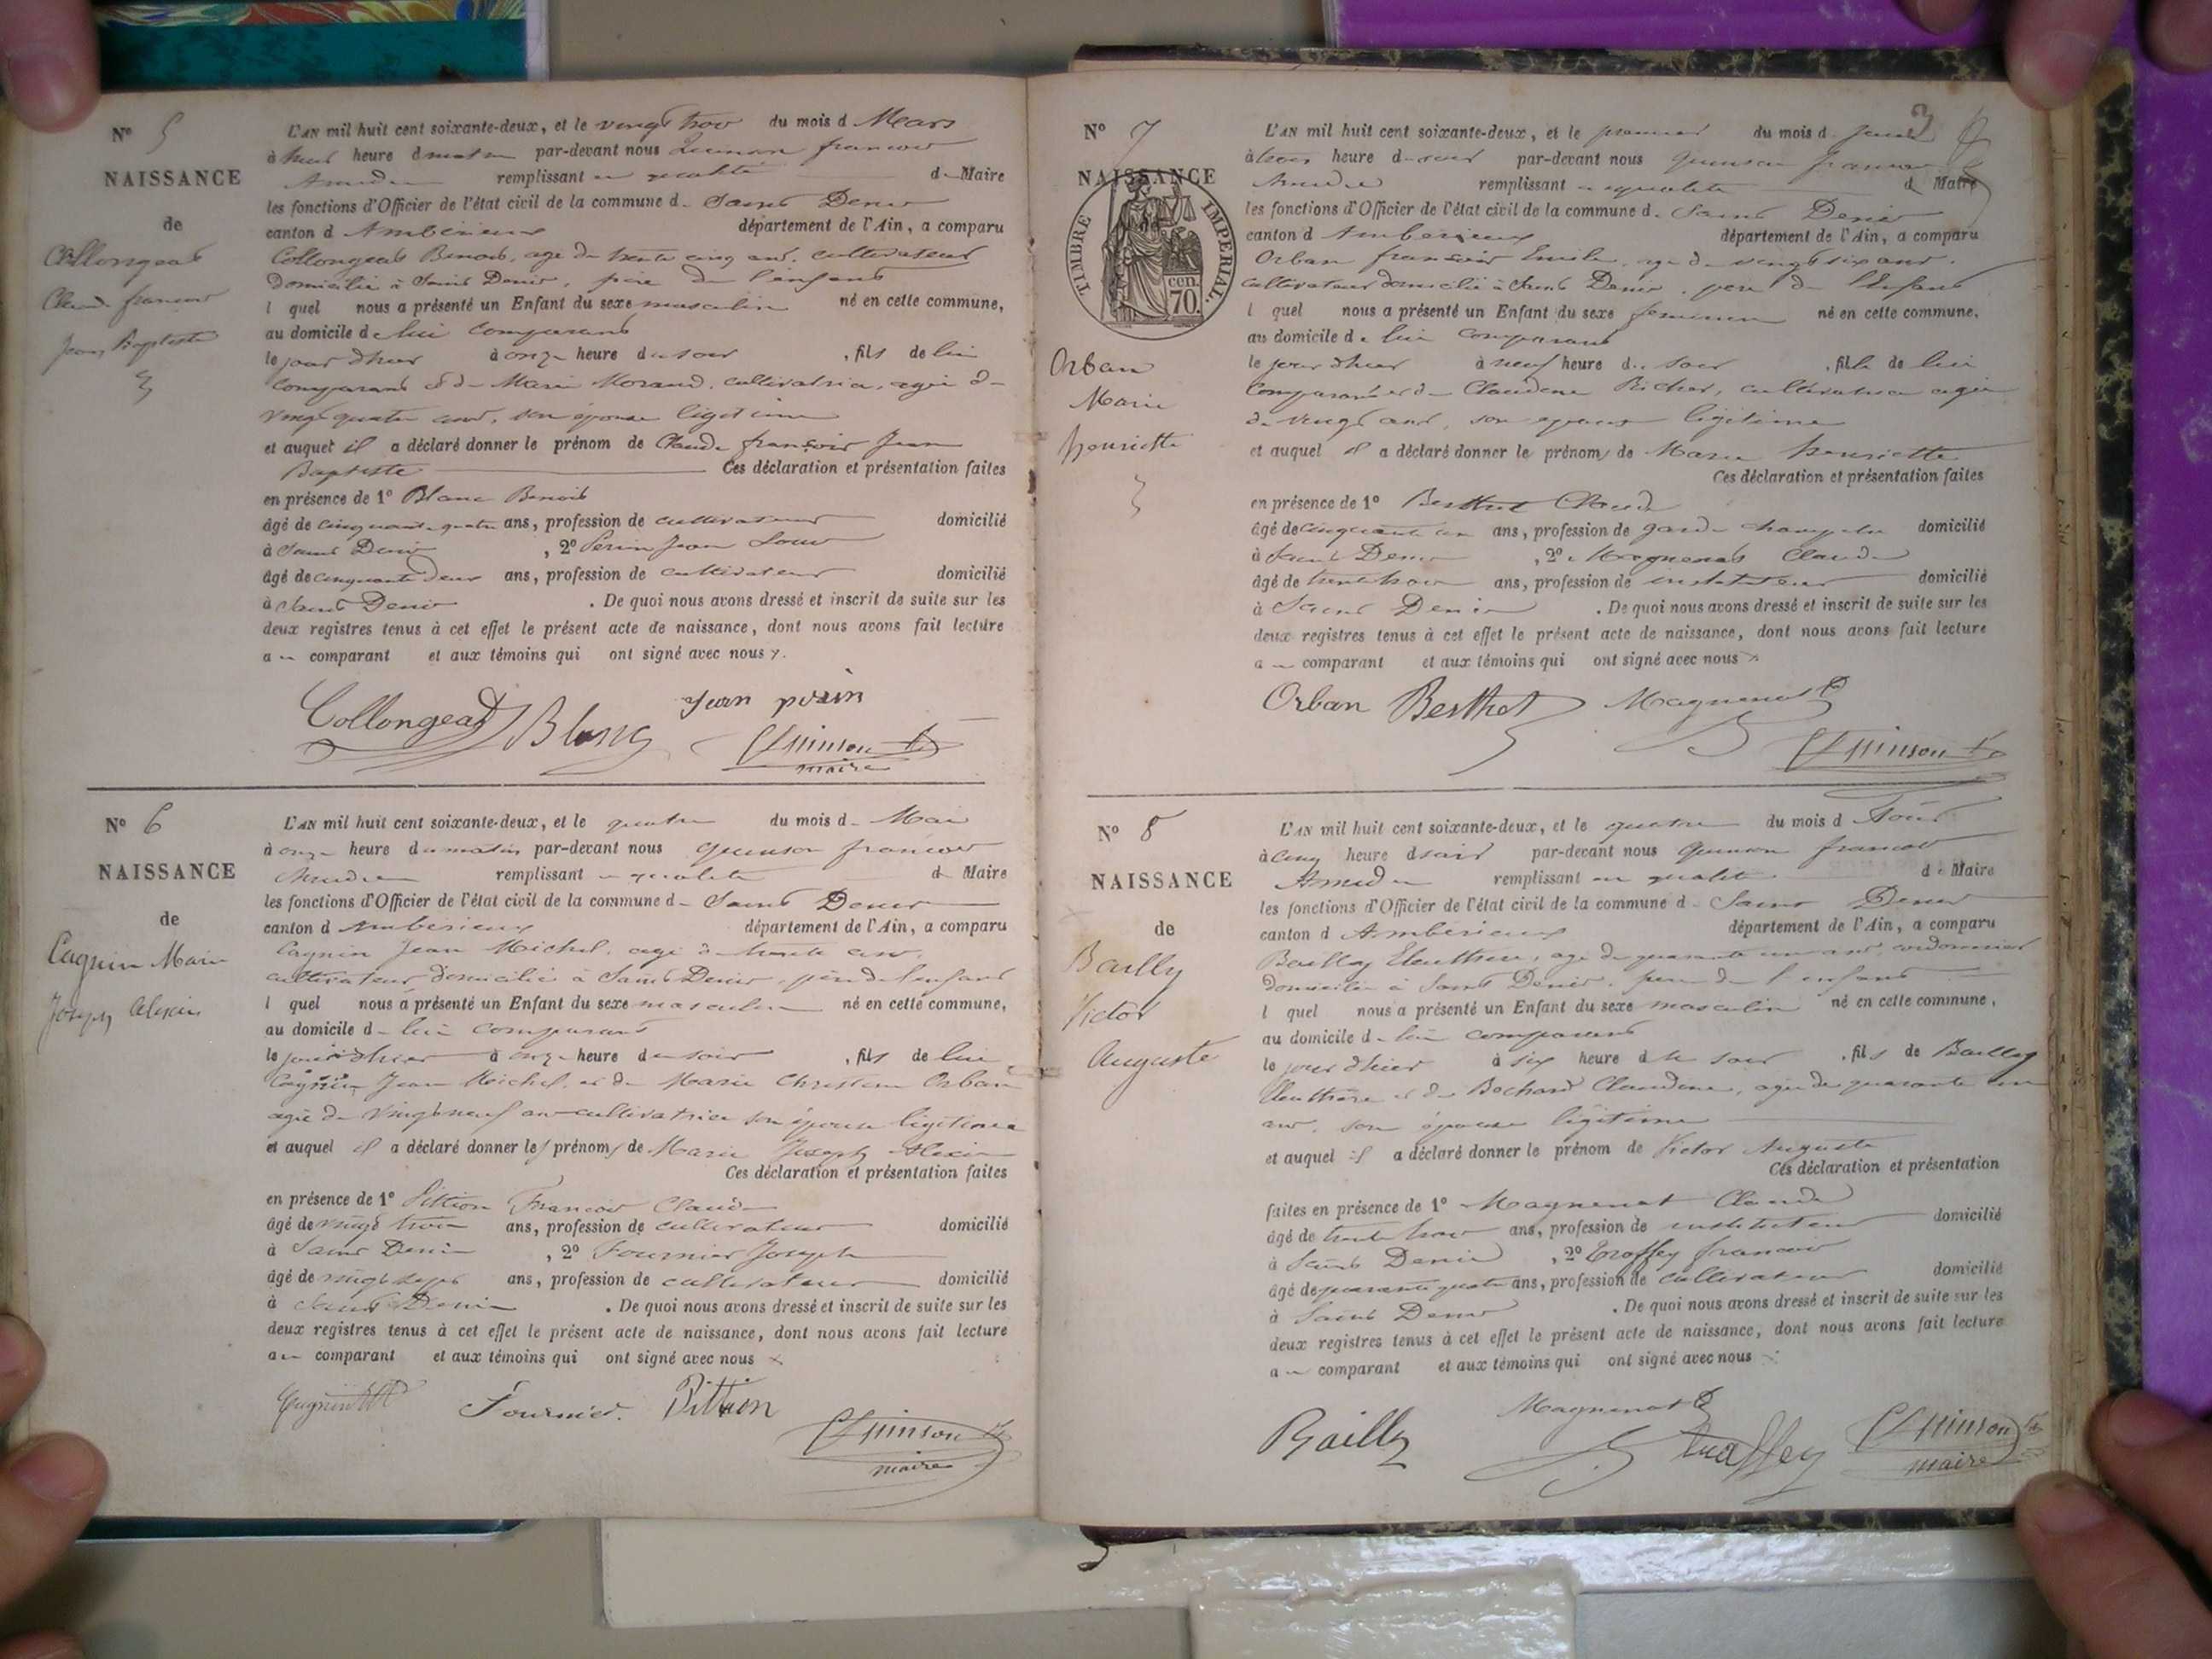 N° 5
NAISSANCE
de
Collongeat
Claude francois
Jean Baptiste
L'AN mil huit cent soixante-deux, et le vingt trois du mois d Mars
à huit heure du matin par-devant nous Quinson francois
Amedee remplissant en qualité de Maire
les fonctions d'Officier de l'état civil de la commune de Saint Denis
canton d Ambérieux département de l'Ain, a comparu
Collongeat Benoit, age de trente cinq ans, cultivateur
domicilié à Saint Denis, père de l'enfant
l quel nous a présenté un Enfant du sexe masculin né en cette commune,
au domicile de lui comparant
le jour d'hier à onze heure du soir, fils de lui
comparant et de Marie Morand, cultivatrice, agée de
vingt quatre ans, son épouse légitime
et auquel il a déclaré donner le prénom de Claude françois Jean
Baptiste Ces déclaration et présentation faites
en présence de 1° Blanc Benoit
âgé de cinquante quatre ans, profession de cultivateur domicilié
à Saint Denis, 2° Perin Jean Louis
âgé de cinquante deux ans, profession de cultivateur domicilié
à Saint Denis. De quoi nous avons dressé et inscrit de suite sur les
deux registres tenus à cet effet le présent acte de naissance, dont nous avons fait lecture
au comparant et aux témoins qui ont signé avec nous
Collongeat Blanc Jean perin
Quinson
maire
N° 6
NAISSANCE
de
Cagnin Marie
Joseph Alexis
L'AN mil huit cent soixante-deux, et le quatre du mois de Mai
à onze heure du matin par-devant nous Quinson francois
Amedee remplissant en qualité de Maire
les fonctions d'Officier de l'état civil de la commune de Saint Denis
canton d Ambérieux département de l'Ain, a comparu
Cagnin Jean Michel, agé de trente ans,
cultivateur, domicilié à Saint Denis, père de l'enfant
l quel nous a présenté un Enfant du sexe masculin né en cette commune,
au domicile de lui comparant
le jour d'hier à onze heure du soir, fils de lui
Cagnin Jean Michel, et de Marie Christine Orban
agée de vingt neuf ans cultivatrice son épouse légitime
et auquel il a déclaré donner les prénoms de Marie Joseph Alexis
Ces déclaration et présentation faites
en présence de 1° Pittion Francois Claude
âgé de vingt trois ans, profession de cultivateur domicilié
à Saint Denis, 2° Fournier Joseph
âgé de vingt sept ans, profession de cultivateur domicilié
à Saint Denis. De quoi nous avons dressé et inscrit de suite sur les
deux registres tenus à cet effet le présent acte de naissance, dont nous avons fait lecture
au comparant et aux témoins qui ont signé avec nous
Cugnin Fournier. Pittion
Quinson
maire
3
N° 7
NAISSANCE
TIMBRE IMPERIAL.
cen.
70.
Orban
Marie
henriette
L'AN mil huit cent soixante-deux, et le premier du mois d
à trois heure du soir par-devant nous Quinson francois
Amedee remplissant en qualité de Maire
les fonctions d'Officier de l'état civil de la commune de Saint Denis
canton d Ambérieux département de l'Ain, a comparu
Orban francois Emile, age de vingt six ans,
cultivateur domicilié à Saint Denis, pere de l'Enfant
l quel nous a présenté un Enfant du sexe feminin né en cette commune.
au domicile de lui comparant
le jour d'hier à neuf heure du soir, fille de lui
comparant et de Claudine Richer, cultivatrice agée
de vingt ans, son epouse légitime
et auquel il a déclaré donner les prénoms de Marie henriette
Ces déclaration et présentation faites
en présence de 1° Berthet Claude
âgé de cinquante un ans, profession de garde champetre domicilié
à Saint Denis, 2° Magnenat Claude
âgé de trente trois ans, profession de instituteur domicilié
à Saint Denis. De quoi nous avons dressé et inscrit de suite sur les
deux registres tenus à cet effet le présent acte de naissance, dont nous avons fait lecture
au comparant et aux témoins qui ont signé avec nous
Orban Berthet Magnenat
Quinson
N° 8
NAISSANCE
de
Bailly
Victor
Auguste
L'AN mil huit cent soixante-deux, et le quatre du mois d Août
à cinq heure du soir par-devant nous Quinson francois
Amedee remplissant en qualité de Maire
les fonctions d'Officier de l'état civil de la commune de Saint Denis
canton d Ambérieux département de l'Ain, a comparu
Bailly Eleuthere, age de quarante un ans, cordonnier
domicilié à Saint Denis, pere de l'enfant
l quel nous a présenté un Enfant du sexe masculin né en cette commune,
au domicile de lui comparant
le jour d'hier à six heure du soir, fils de Bailly
Eleuthère et de Bochard Claudine, agée de quarante un
ans, son épouse légitime
et auquel il a déclaré donner le prénom de Victor Auguste
Ces déclaration et présentation
faites en présence de 1° Magnenat Claude
âgé de trente trois ans, profession de instituteur domicilié
à Saint Denis, 2° Troffey francois
âgé de quarante quatre ans, profession de cultivateur domicilié
à Saint Denis. De quoi nous avons dressé et inscrit de suite sur les
deux registres tenus à cet effet le présent acte de naissance, dont nous avons fait lecture
au comparant et aux témoins qui ont signé avec nous
Bailly Magnenat Truffey Quinson
maire